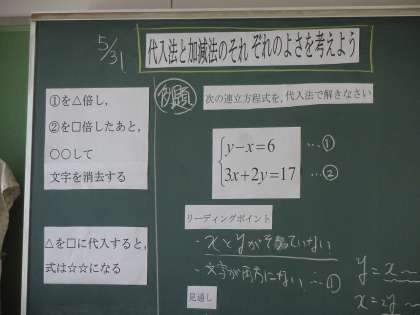 5/31
代入法と加減法のそれぞれのよさを考えよう
①を△倍し,
②を□倍したあと,
○○して
文字を消去する
△を□に代入すると,
式は☆☆になる
例題
次の連立方程式を,代入法で解きなさい
y−x=6 …①
3x+2y=17 …②
リーディングポイント
・xとyがそろっていない
・文字が両方にない ①
y=x〜
x=y〜
見通し